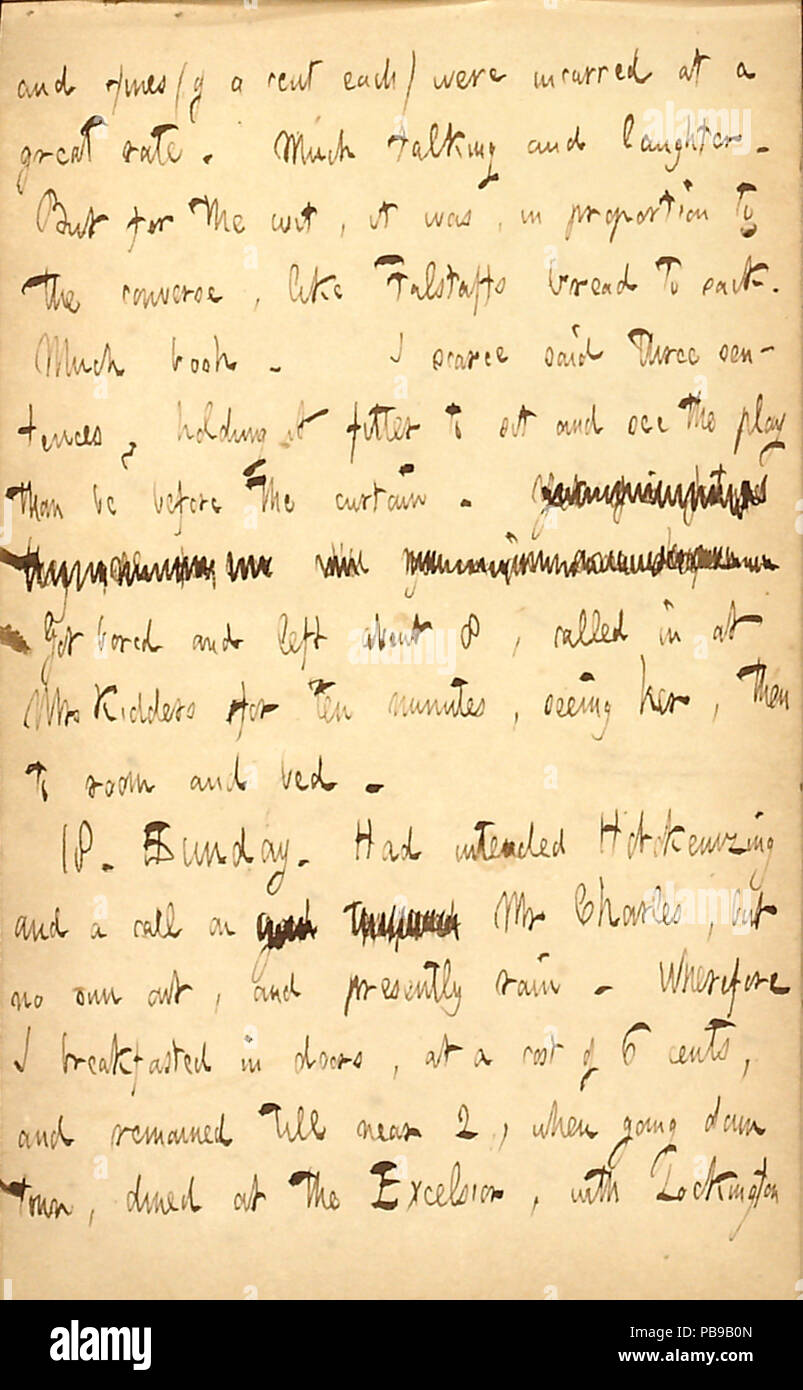 and fines (of a cent each) were incurred at a
great rate. Much talking and laughter.
But for the wit, it was, in proportion to
the converse, like Falstaffs bread to sack.
Much bosh. I scarce said three sen-
tences, holding it fitter to sit and see the play
than be before the curtain.
Got bored and left about 8, called in at
Mrs Kidders for ten minutes, seeing her, then
to room and bed.
18. Sunday. Had intended Hobokenizing
and a call on Mr Charles, but
no sun out, and presently rain. Wherefore
I breakfasted in doors, at a cost of 6 cents,
and remained till near 2, when going down
town, dined at the Excelsior, with Lockington
alamy
Image ID: PB9B0N
www.alamy.com